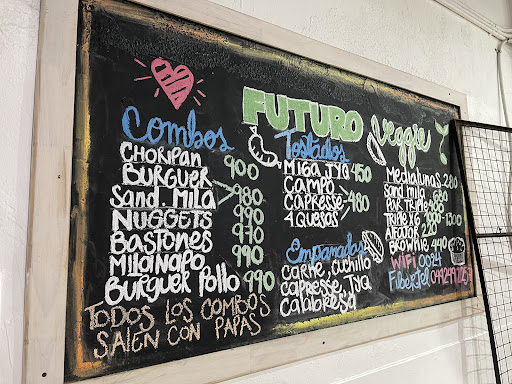 FUTURO Veggie
Combos
CHORIPAN 900
BURGUER
SAND. MILA 980
NUGGETS 990
BASTONES 970
MILANAPO 990
BURGUER Pollo 990
TODOS LOS COMBOS
SALEN CON PAPAS
Tostados
MIGA JYQ 450
CAMPO
CAPRESE 480
4 QUESOS
Empanadas
CARNE, CUCHILLO
CAPRESE, JYQ
CALABRESA
MEDIALUNAS 280
SAND MILA 680
TRIPLE X6 1000-1300
ALFAJOR 220
BROWNIE 440
WiFi 0024
FIBERTEL